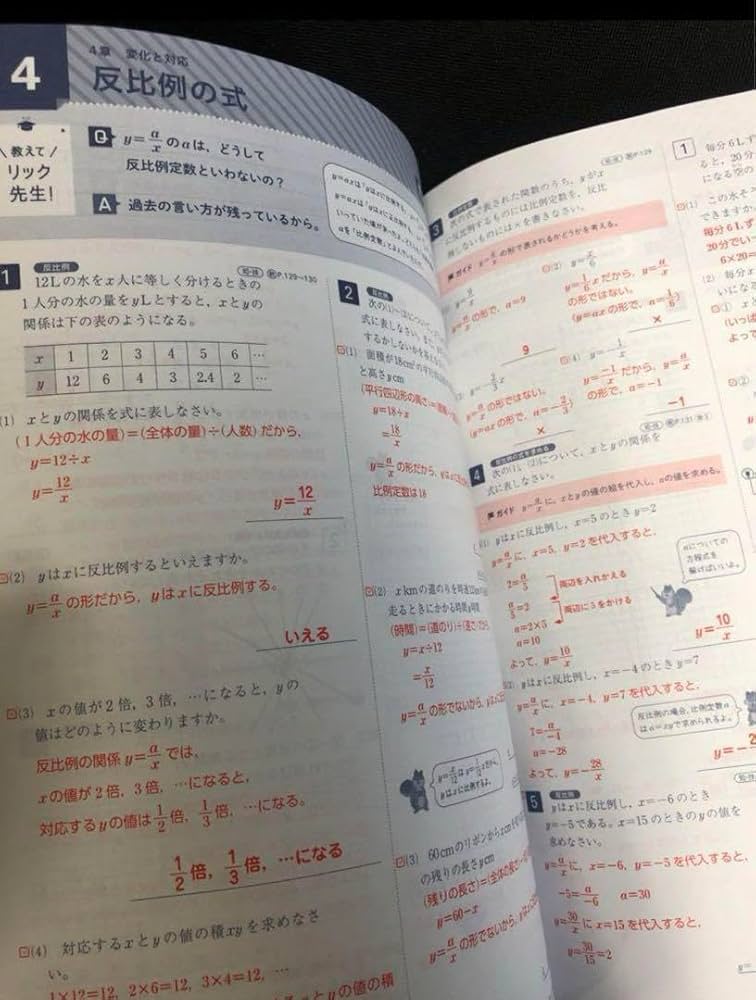 4
4章 変化と対応
反比例の式
教えて
リック
先生!
Q y=a/xのaは、どうして
反比例定数といわないの?
A 過去の言い方が残っているから。
1 反比例
12Lの水をx人に等しく分けるときの
1人分の水の量をyLとすると、xとyの
関係は下の表のようになる。
x 1 2 3 4 5 6 …
y 12 6 4 3 2.4 2 …
(1) xとyの関係を式に表しなさい。
(1人分の水の量)=(全体の量)÷(人数)だから、
y=12÷x
y=12/x
y=12/x
(2) yはxに反比例するといえますか。
y=a/xの形だから、yはxに反比例する。
いえる
(3) xの値が2倍、3倍、…になると、yの
値はどのように変わりますか。
反比例の関係y=a/xでは、
xの値が2倍、3倍、…になると、
対応するyの値は1/2倍、1/3倍、…になる。
1/2倍、1/3倍、…になる
(4) 対応するxとyの値の積xyを求めなさ
い。
1×12=12, 2×6=12, 3×4=12, …
xとyの値の積
2 反比例
次の(1)~(3)について、
式に表しなさい。
(1) 面積が18cm²の平行四辺形の
と高さycm
(平行四辺形の高さ)=
y=18÷x
=18/x
y=a/xの形だから、yはxに
比例定数は18
(2) xkmの道のりを時速12km
走るときにかかる時間y時間
(時間)=(道のり)÷(速さ)だから
y=x÷12
=x/12
y=a/xの形でないから、
y=x/12はy=1/12xだから、
yはxに比例するよ。
(3) 60cmのリボンからxcm
の残りの長さycm
(残りの長さ)=(全体の長さ)
y=60-x
y=a/xの形でないから、
3
次の式で表された関数のうち、yがx
に反比例するものには比例定数を、反比
例しないものには×を書きなさい。
ガイド y=a/xの形で表されるかどうかを考える。
y=9/x
y=a/xの形で、a=9
9
(2) y=x/6
y=1/6xだから、y=a/x
の形ではない。
(y=axの形で、a=1/6)
×
y=-2/3x
y=a/xの形ではない。
(y=axの形で、a=-2/3)
×
(4) y=-1/x
y=-1/xだから、y=a/x
の形で、a=-1
-1
4 反比例の式を求める
次の(1)、(2)について、xとyの関係を
式に表しなさい。
ガイド y=a/xに、xとyの値の組を代入し、aの値を求める。
(1) yはxに反比例し、x=5のときy=2
y=a/xに、x=5、y=2を代入すると、
2=a/5
a/5=2
両辺を入れかえる
a=2×5
両辺に5をかける
a=10
よって、y=10/x
aについての
方程式を
解けばいいよ。
y=10/x
(2) yはxに反比例し、x=-4のときy=7
y=a/xに、x=-4、y=7を代入すると、
7=a/-4
a=-28
よって、y=-28/x
反比例の場合、比例定数a
はa=xyで求められるよ。
5 反比例
yはxに反比例し、x=-6のとき
y=-5である。x=15のときのyの値を
求めなさい。
y=a/xに、x=-6、y=-5を代入すると、
-5=a/-6 a=30
y=30/xにx=15を代入すると、
y=30/15=2
1
毎分6L
ると、20分
になる空の
(1) この水そ
できますか。
毎分6L
20分でい
6×20=
(2) 毎分x
いになる
よって